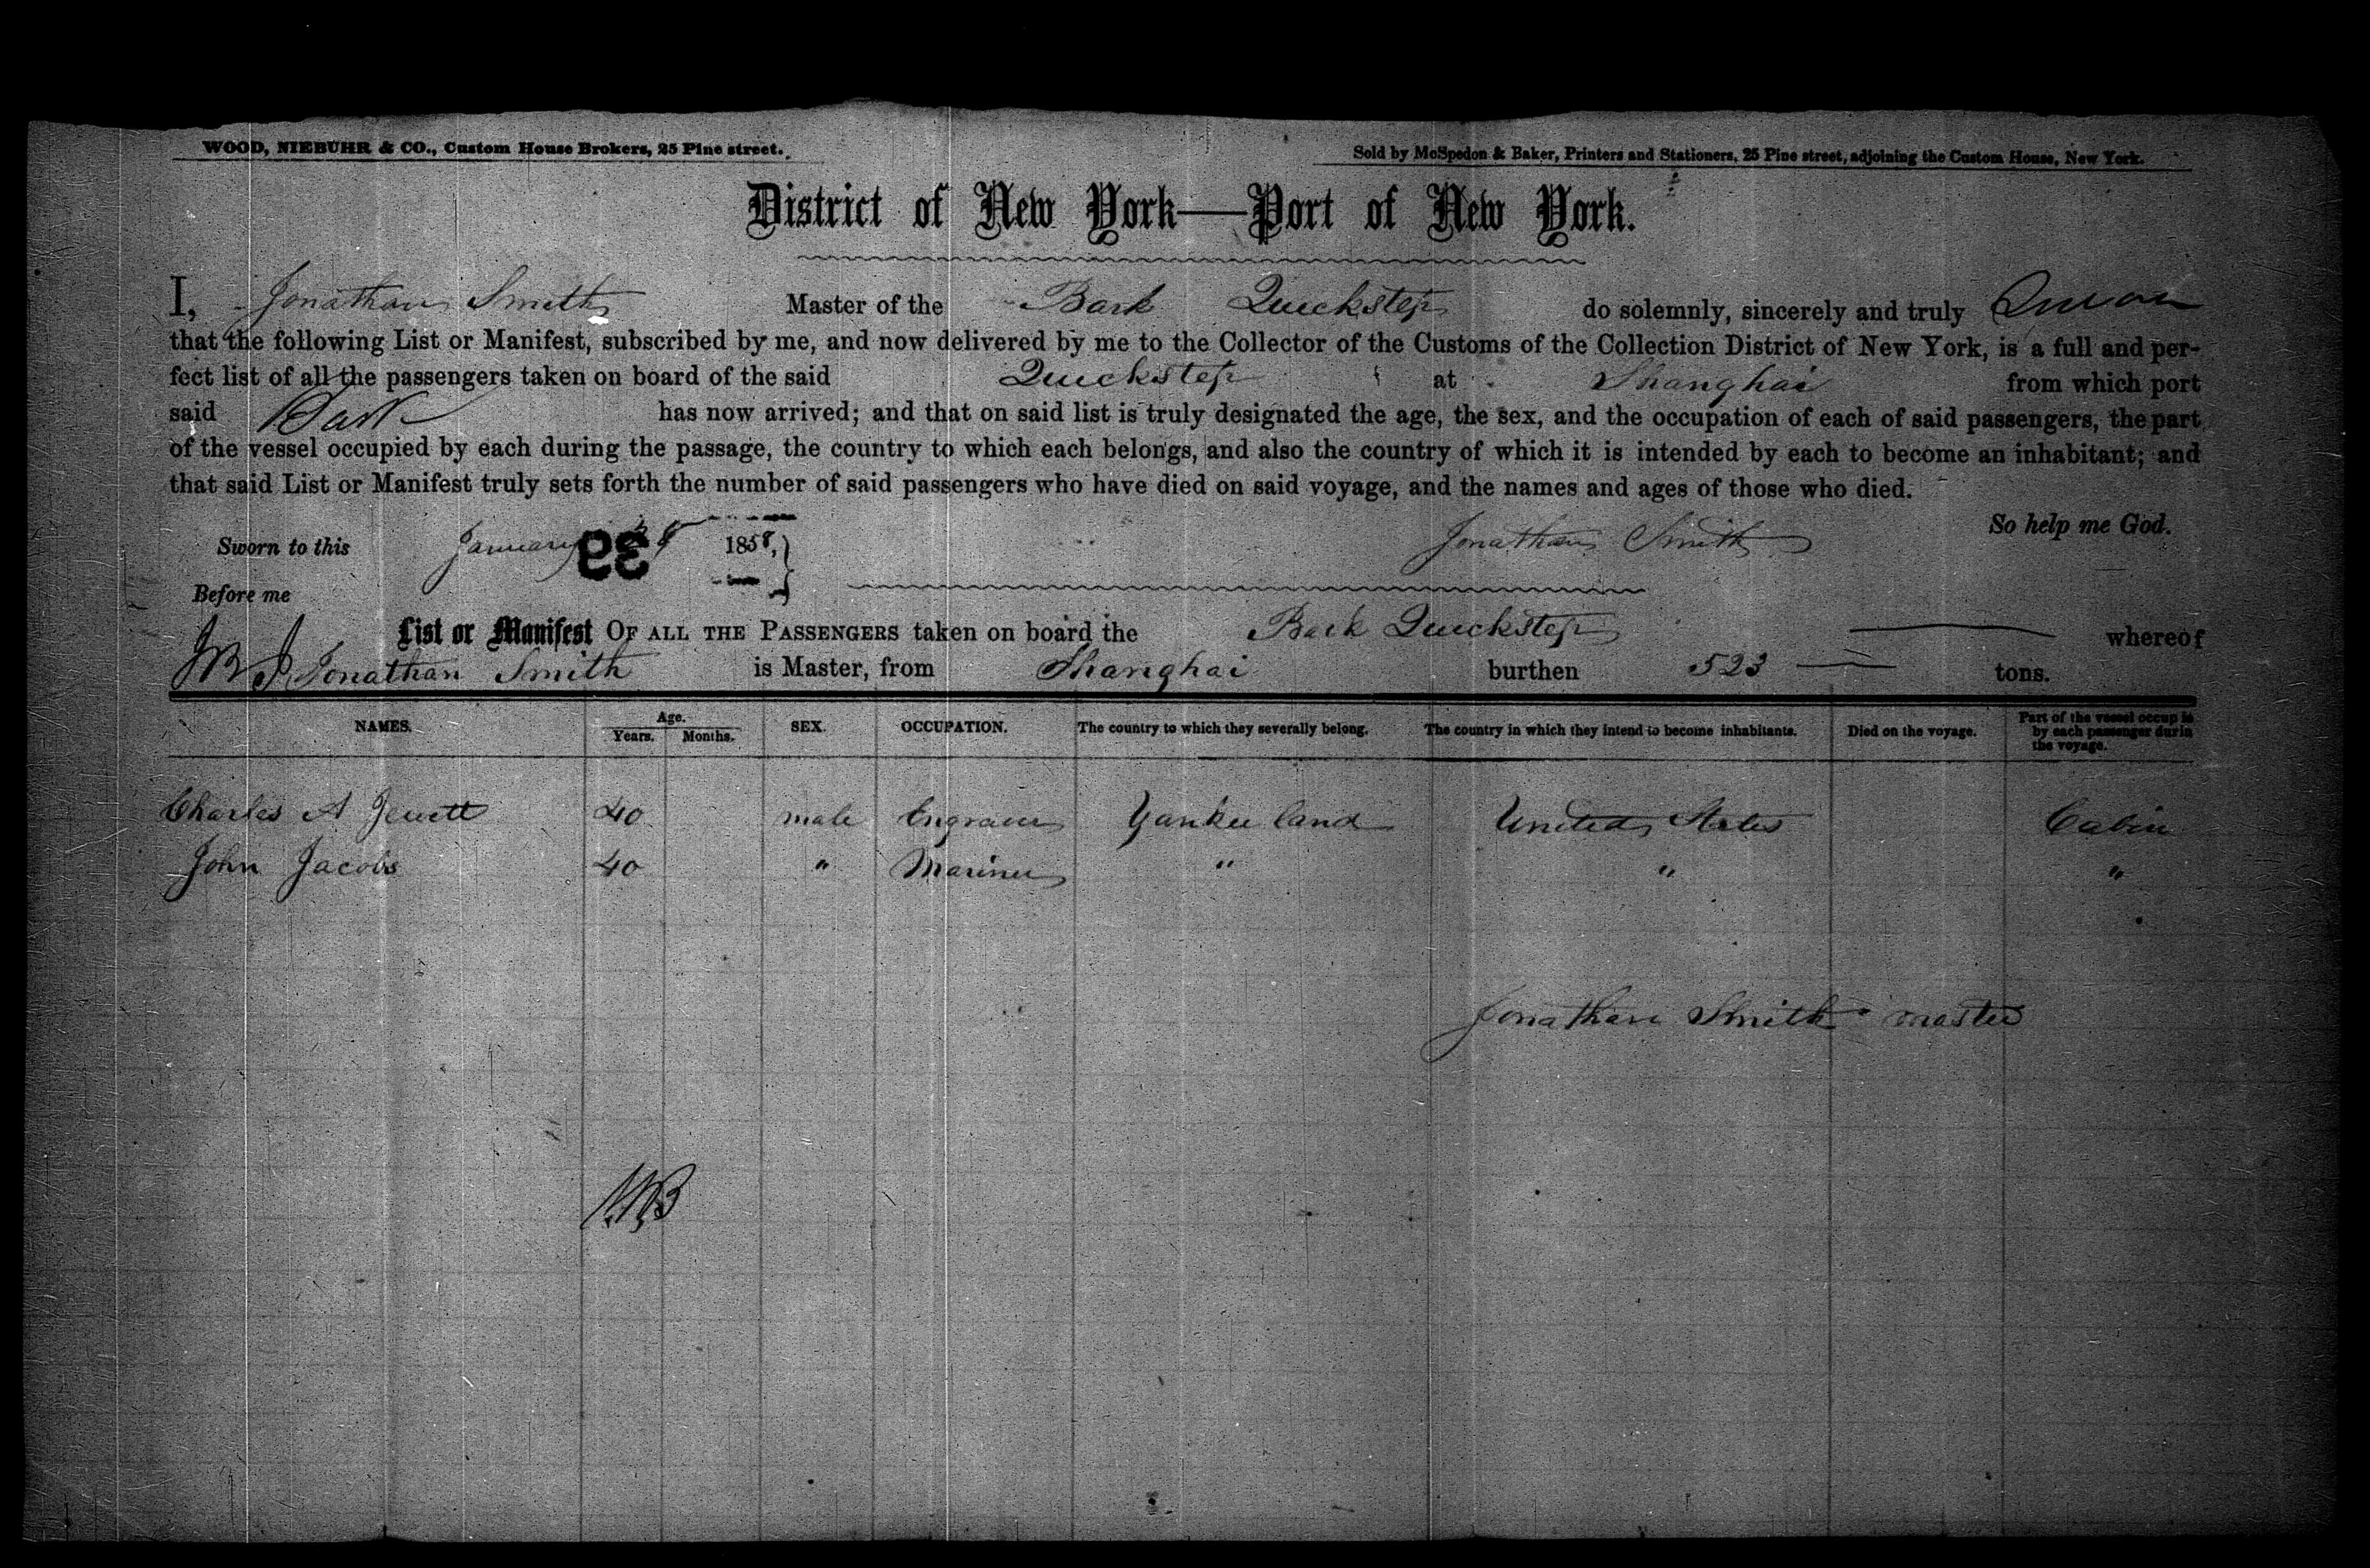 WOOD, NIEBUHR & CO., Custom House Brokers, 25 Pine street.
Sold by McSpedon & Baker, Printers and Stationers, 25 Pine street, adjoining the Custom House, New York.
District of New York—Port of New York.
I, Jonathan Smith Master of the Bark Quickstep do solemnly, sincerely and truly Swear
that the following List or Manifest, subscribed by me, and now delivered by me to the Collector of the Customs of the Collection District of New York, is a full and per-
fect list of all the passengers taken on board of the said Quickstep at Shanghai from which port
said Bark has now arrived; and that on said list is truly designated the age, the sex, and the occupation of each of said passengers, the part
of the vessel occupied by each during the passage, the country to which each belongs, and also the country of which it is intended by each to become an inhabitant; and
that said List or Manifest truly sets forth the number of said passengers who have died on said voyage, and the names and ages of those who died.
So help me God.
Sworn to this January 1858, Jonathan Smith
39
Before me
List or Manifest OF ALL THE PASSENGERS taken on board the Bark Quickstep whereof
Jonathan Smith is Master, from Shanghai burthen 523 tons.
NAMES. Age. Years. Months. SEX. OCCUPATION. The country to which they severally belong. The country in which they intend to become inhabitants. Died on the voyage. Part of the vessel occup
by each passenger durin
the voyage.
Charles A Jewett 40 male Engraver Yankee land United States Cabin
John Jacobs 40 " Mariner " " "
Jonathan Smith master